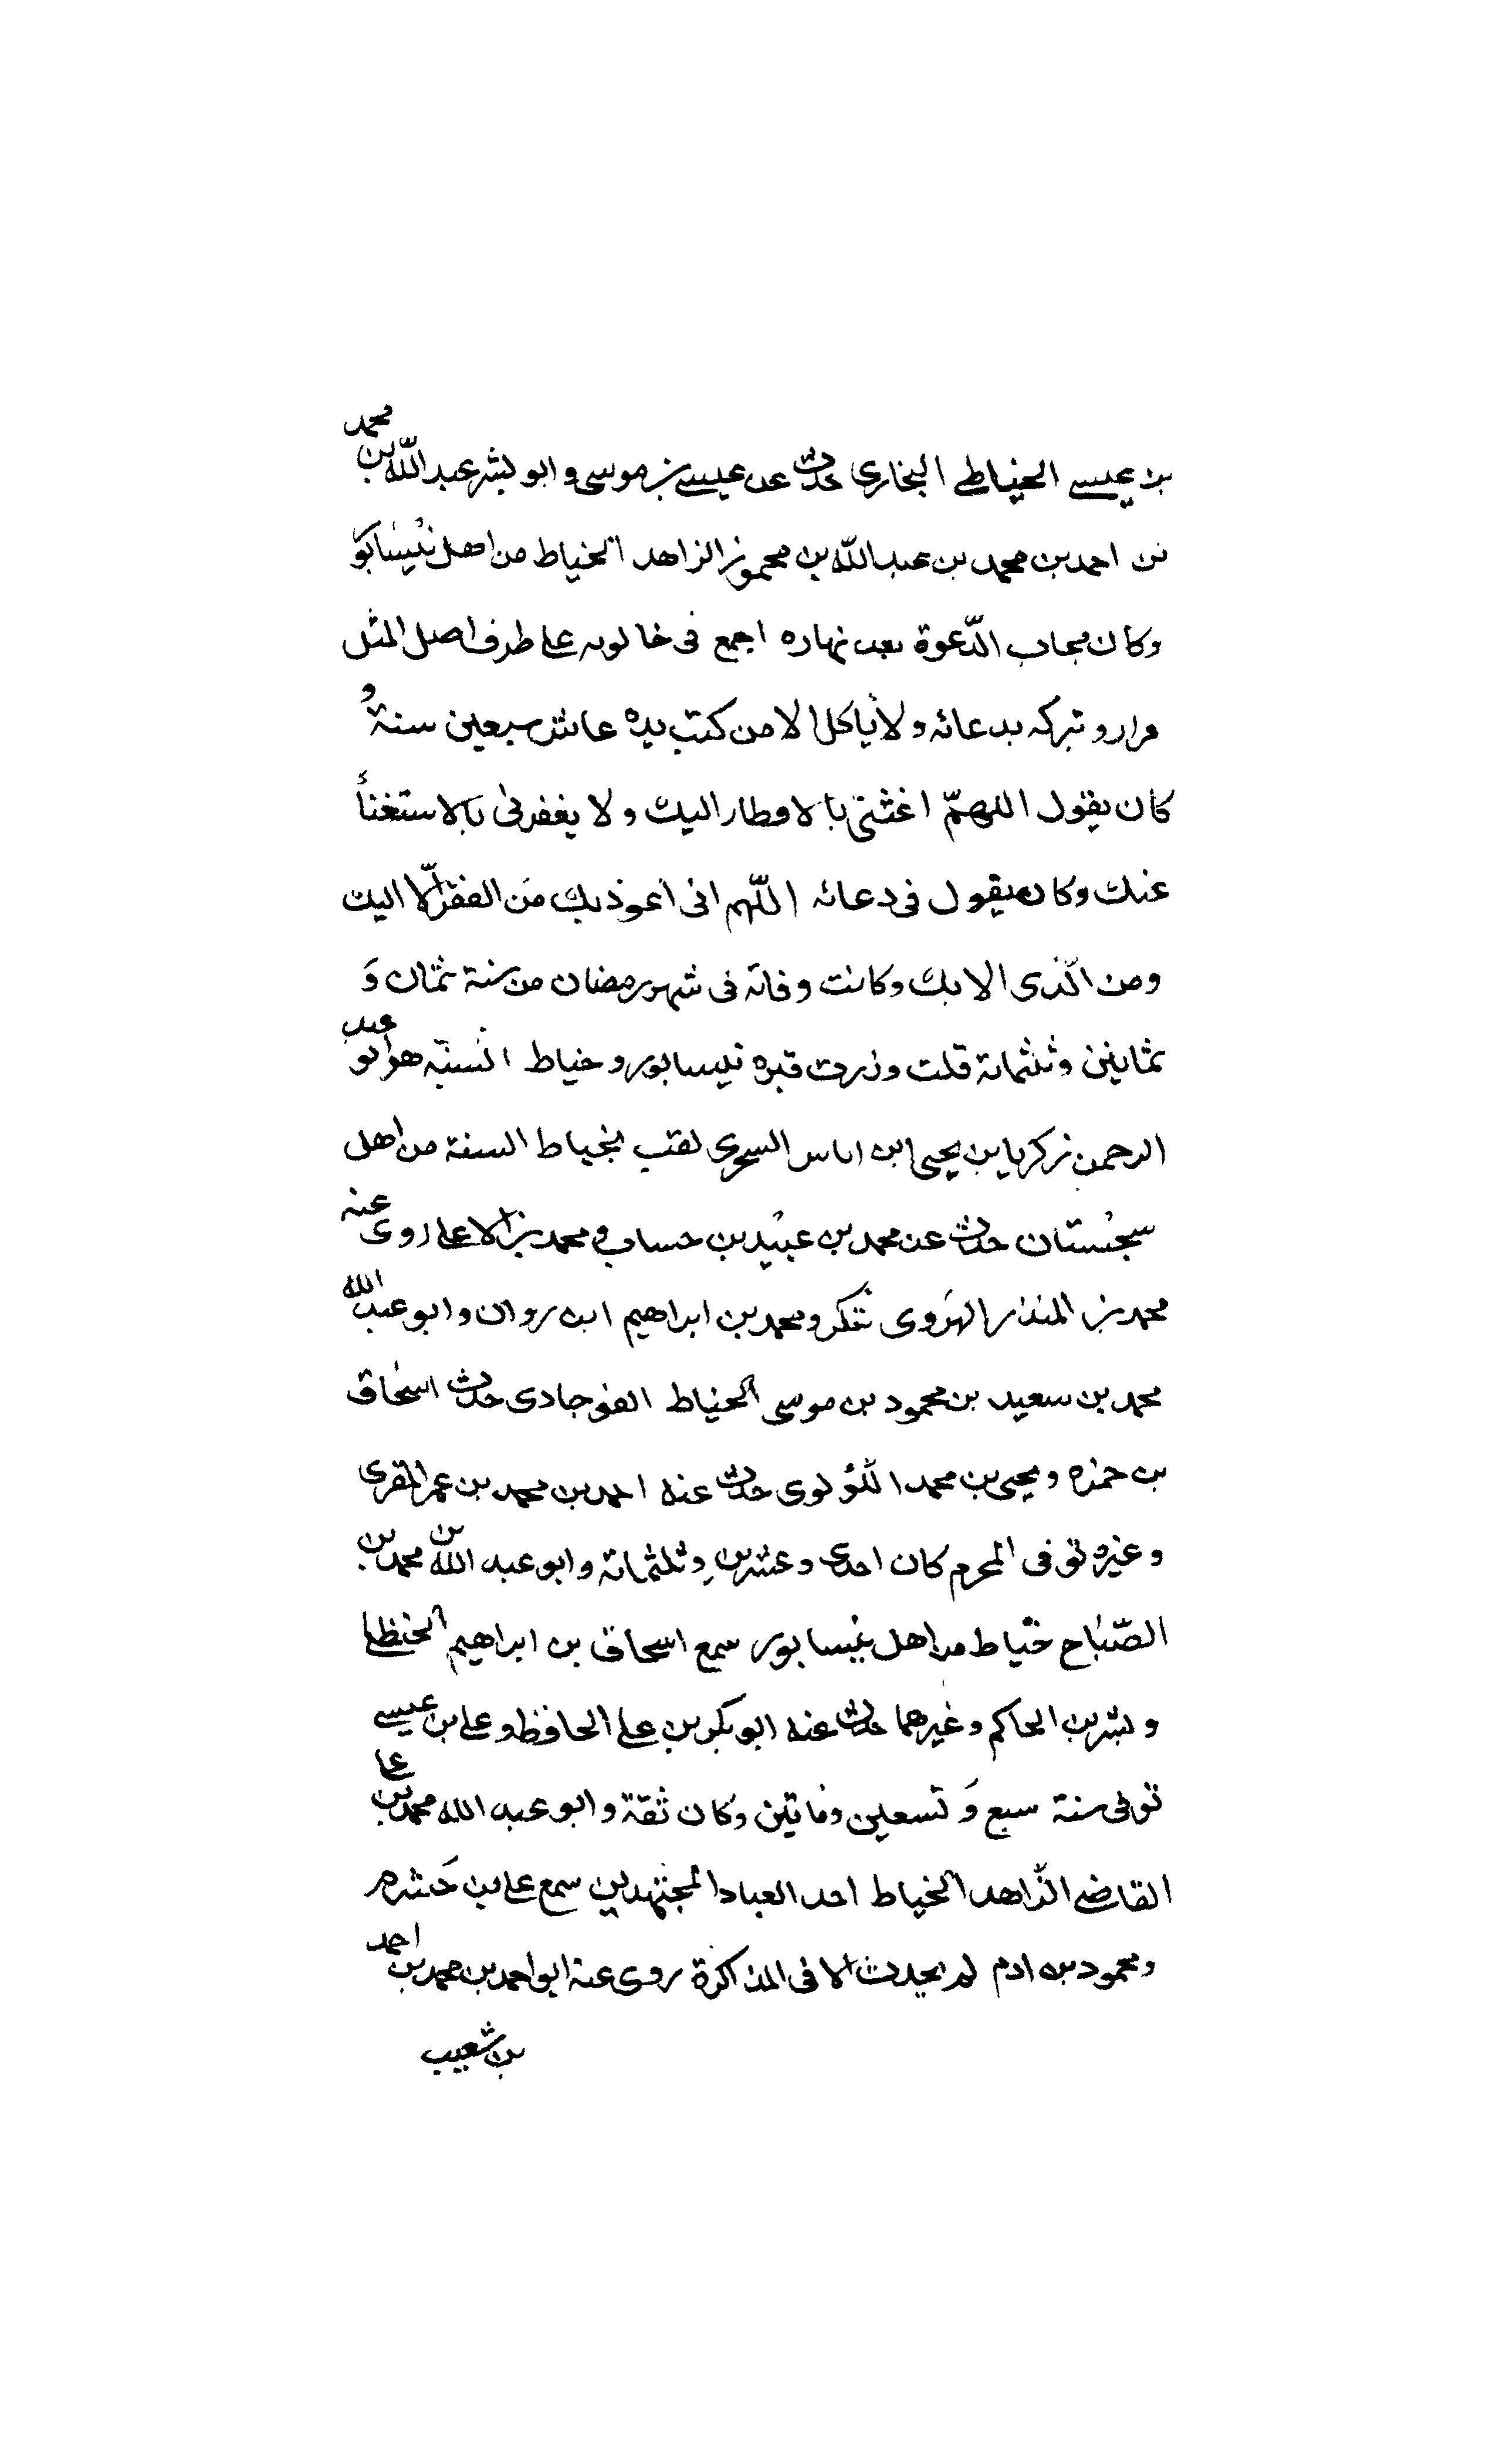 بن عيسى الخياطى البخارى حدث عن عيسى بن موسى و ابو بشر عبد الله بن محمد
بن احمد بن محمد بن عبد الله بن محموز الزاهد الخياط من اهل نيسابو
وكان مجاب الدّعوة بعد نهاره اجمع فى خا لوبه على طرف اصل المثل
مرار و تبركه بدعائه ولا ياكل الا من كتب يده عاش سبعين سنة و
كان يقول اللهمّ اغثنى بالافطار اليك ولا يغفرنى بالاستغنأ
عنك وكان يقول فى دعائه اللّهم انى اعوذ بك من الفقر الّا اليك
ومن الذى الا بك وكانت وفاته فى شهر رمضان من سنة ثمان و
ثمانين وثلثمائة قلت وزرت قبره نيسابور و خياط السنّة هو ابو عبد
الرحمن زكريا بن يحيى ابن اياس السجزى لقب بخياط السنة من اهل
سجستان حدث عن محمد بن عبيد بن حساب و محمد بن الاعلى روى عنه
محمد بن المنذر الهروى شكر ومحمد بن ابراهيم ابن روان و ابو عبد الله
محمد بن سعيد بن محمود بن موسى الخياط الفوجادى حدث اسحاق
بن حمزه ويحيى بن محمد اللّؤلوى حدث عنه احمد بن محمد بن عمر المقرى
وغيره توفى المحرم كان احدى وعشرين وثلثمائة وابو عبد الله بن محمد بن
الصّباح خيّاط من اهل نيسابور سمع اسحاق بن ابراهيم الحنظلى
و بشر بن الحاكم وغيرهما حدث عنه ابو بكر بن على الحافظ و على بن عيسى
توفى سنة سبع و تسعين وماتين وكان ثقة و ابو عبد الله محمد بن على
القاضى الزّاهد الخياط احد العباد المجتهدين سمع على بن خشرم
ومحمود بن ادم لم يحدث الا فى المذاكرة روى عنه ابو احمد بن محمد بن احمد
بن شعيب